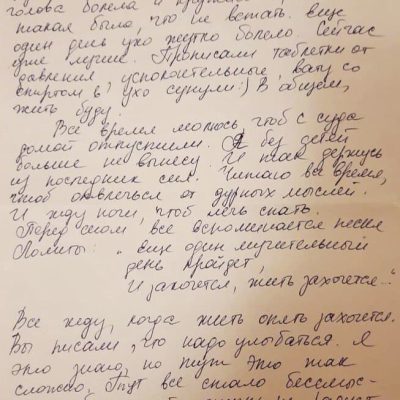 голова болела и
такая была, что не встать. Еще
один день ухо жутко болело. Сейчас
уже лучше. Прописали таблетки от
давления, успокоительные, вату со
спиртом в ухо сунули:) В общем,
жить буду.
Все время молюсь, чтоб с суда
домой отпустили. Я без детей
больше не вынесу. И так держусь
из последних сил. Читаю все время,
чтоб отвлечься от дурных мыслей.
И жду ночи, чтоб лечь спать.
Перед сном все вспоминается песня
Лолиты: "еще один мучительный
день пройдет,
И захочется, жить захочется..."
Все жду, когда жить опять захочется.
Вы писали, что надо улыбаться. Я
это знаю, но тут это так
сложно. Тут все стало бессмыс-